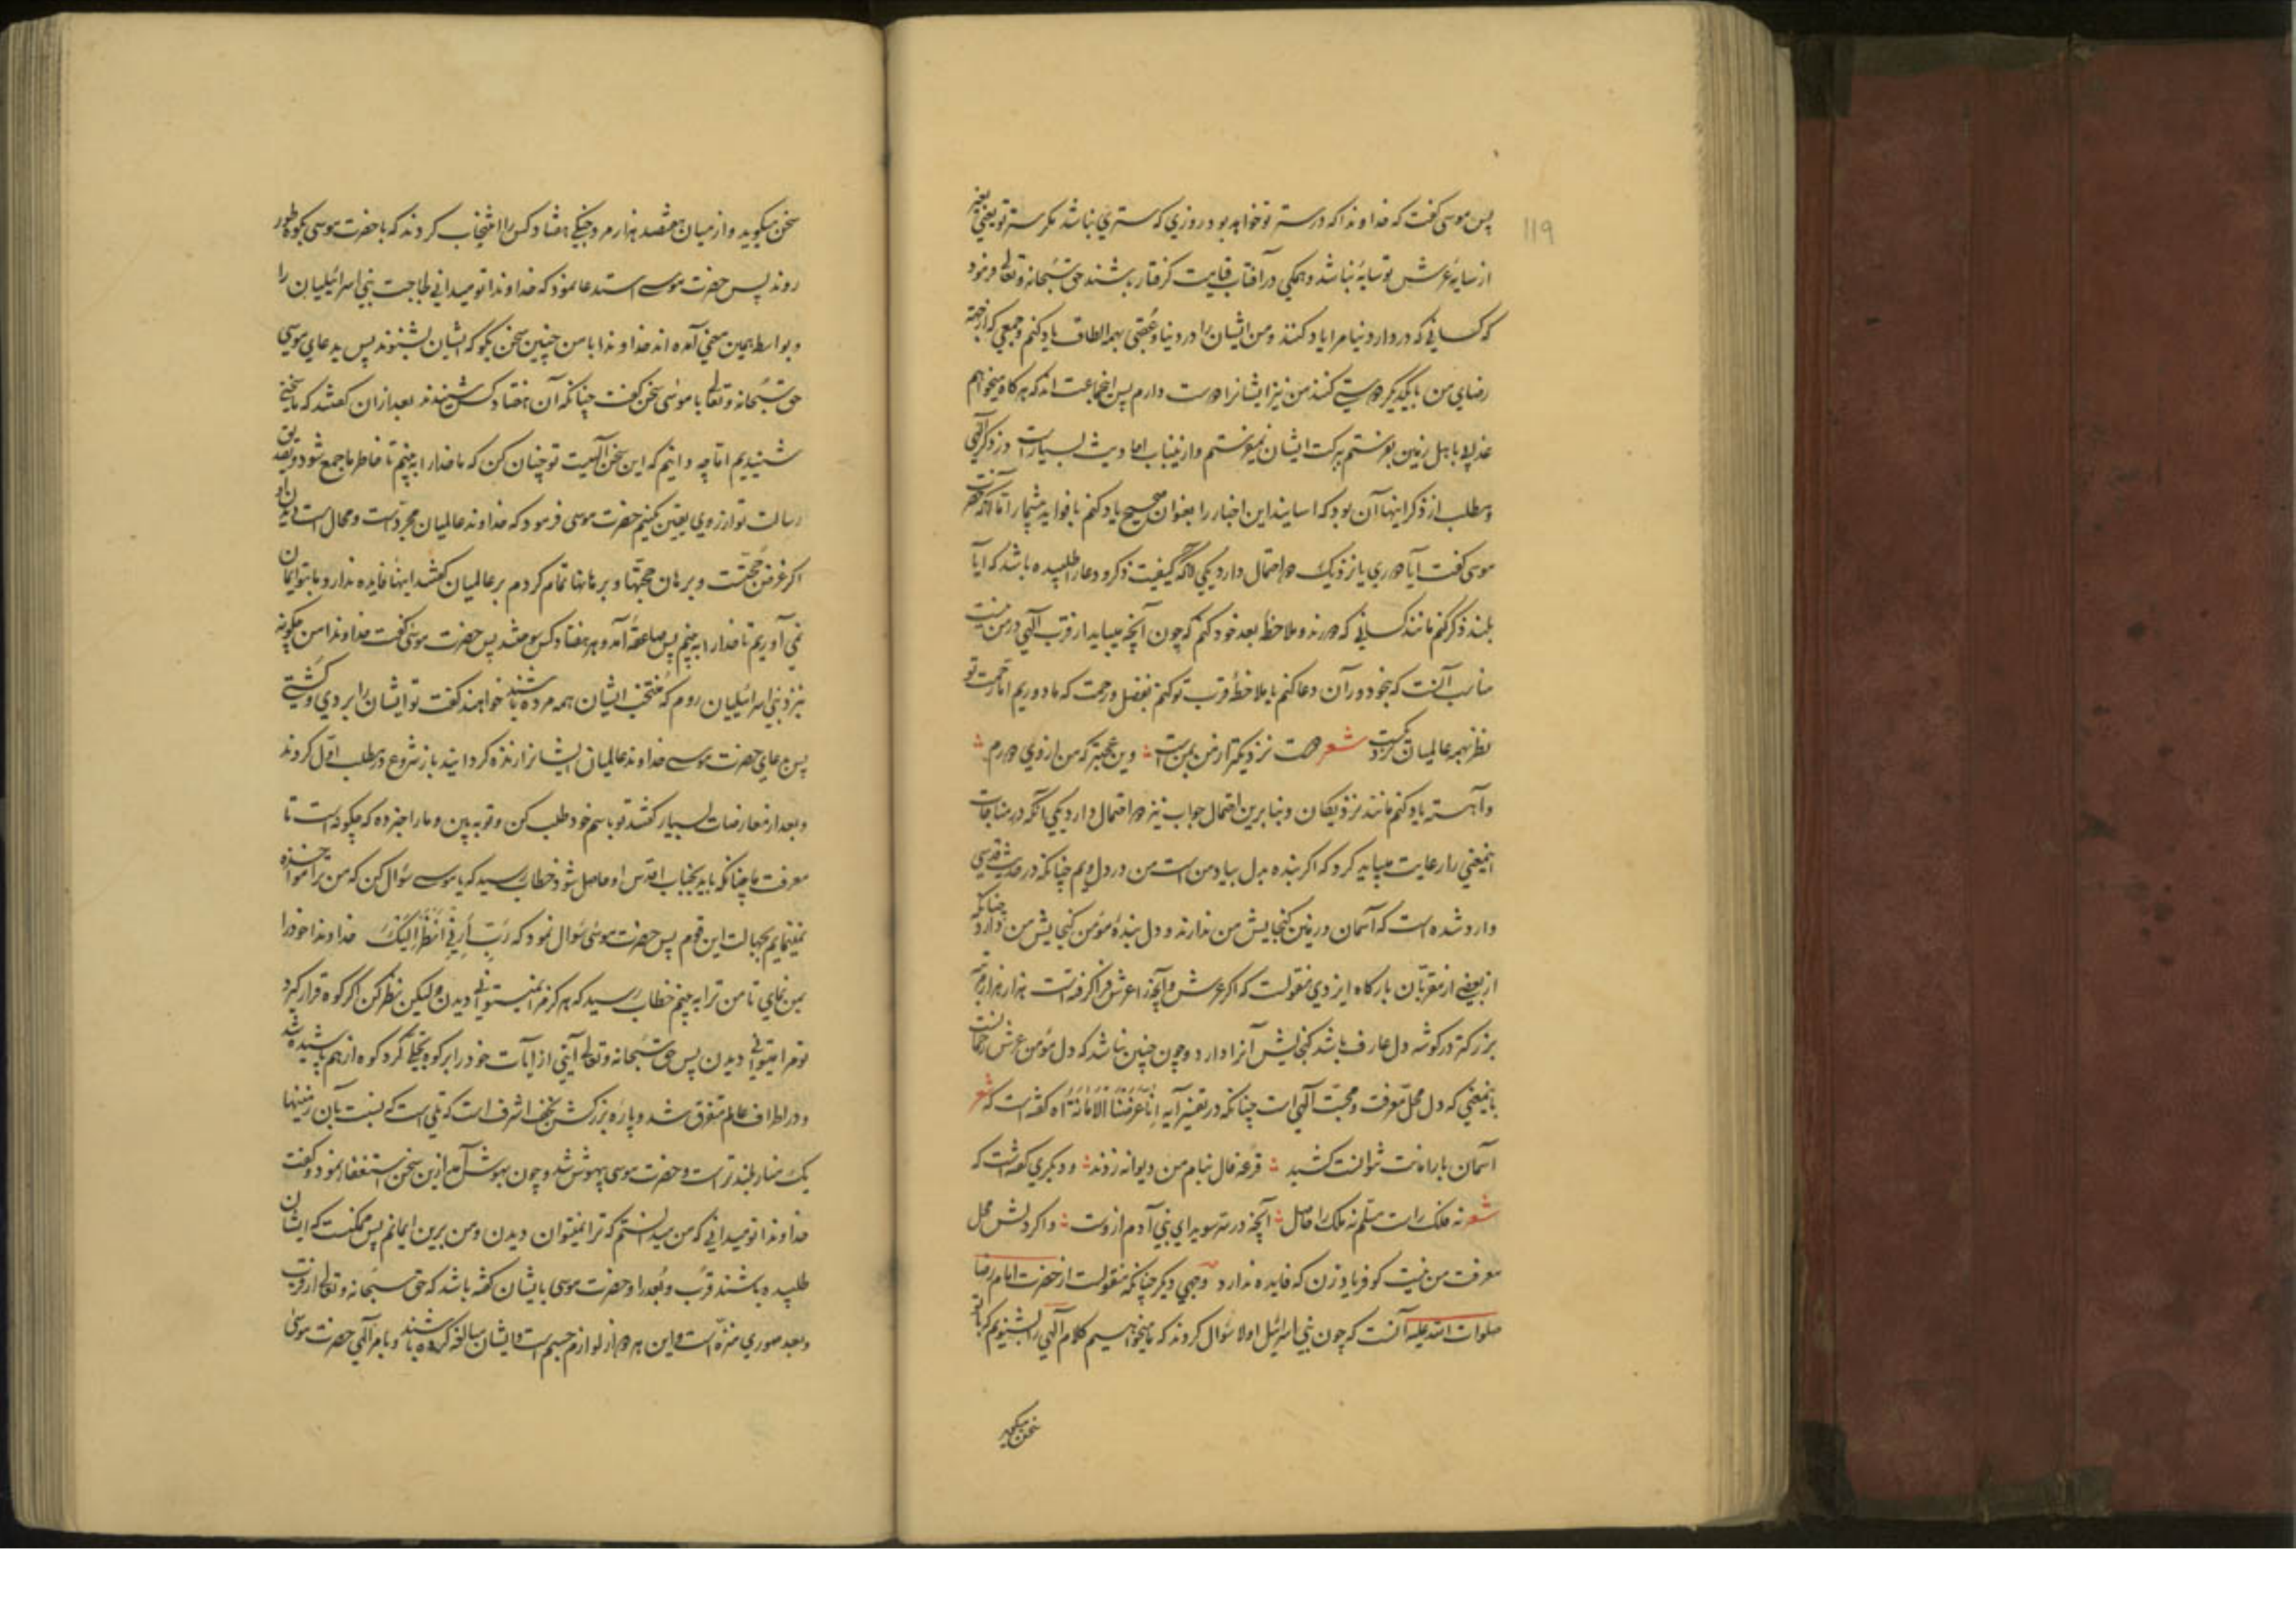 119
پس موسی گفت که خداوندا که در ستر تو خواهد بود روزی که ستری نباشد مگر ستر تو یعنی بغیر
از سایهٔ عرش تو سایهٔ نباشد و همکی در آفتاب قیامت گرفتار باشند حق سبحانه و تعالی فرمود
که کسانی که در دار دنیا مرا یاد کنند و من ایشان را در دنیا و عقبی بهمه الطاف یاد کنم و جمعی که از جهة
رضای من با یکدیگر دوستی کنند من نیز ایشانرا دوست دارم پس انجماعت اند که هر گاه میخواهم
عذابی باهل زمین بفرستم ببرکت ایشان نمیفرستم و ازینباب احادیث بسیارست در ذکر الهی
و مطلب از ذکر اینها آن بود که اسانید این اخبار را بعنوان صحیح یاد کنم با فواید بیشمار اما آنکه حضرت
موسی گفت آیا دوری یا نزدیک دو احتمال دارد یکی آنکه کیفیت ذکر و دعا را طلبیده باشد که آیا
بلند ذکر کنم مانند کسانی که دورند و ملاحظهٔ بعد خود کنم که چون آنچه میباید از قرب الهی در من نیست
مناسب آنست که بخود دوران دعا کنم یا ملاحظهٔ قرب تو کنم بفضل و رحمت که ما دوریم اما رحمت تو
نظر بهمه عالمیان نزدیکست شعر دوست نزدیکتر از من بمن است وین عجبتر که من از وی دورم
و آهسته یاد کنم مانند نزدیکان و بنابرین احتمال جواب نیز دو احتمال دارد یکی آنکه در مناجات
اینمعنی را رعایت میباید کرد که اگر بنده بدل بیاد من است من در دل ویم چنانکه در حدیث قدسی
وارد شده است که آسمان و زمین گنجایش من ندارند و دل بندهٔ مؤمن گنجایش من دارد چنانکه
از بعضی از مقربان بارگاه ایزدی منقولست که اگر عرش و آنچه را عرش فرا گرفته است هزار هزار مرتبه
بزرگتر در گوشه دل عارف باشد گنجایش آنرا دارد و چون چنین نباشد که دل مؤمن عرش رحمانست
باینمعنی که دل محل معرفت و محبت الهی است چنانکه در تفسیر آیه إنا عرضنا الأمانة اه گفته است که شعر
آسمان بار امانت نتوانست کشید قرعه فال بنام من دیوانه زدند و دیگری گفته است که
شعر نه فلک راست مسلم نه ملک را حاصل آنچه در سر سویدای بنی آدم ازوست و اگر دلش محل
معرفت من نیست گو فریاد زن که فایده ندارد وجهی دیگر چنانکه منقولست از حضرت امام رضا
صلوات الله علیه آنست که چون بنی اسرائیل اولا سؤال کردند که ما میخواهیم کلام الهی را بشنویم که با تو
سخن میگوید
سخن میگوید و از میان هفتصد هزار مرد جنگی هفتاد کس را انتخاب کردند که با حضرت موسی بکوه طور
روند پس حضرت موسی استدعا نمود که خداوندا تو میدانی لجاجت بنی اسرائیلیان را
و بواسطه همین معنی آمده اند خداوندا با من چنین سخن بگو که ایشان بشنوند پس بدعای موسی
حق سبحانه و تعالی با موسی سخن گفت چنانکه آن هفتاد کس شنیدند بعد ازان گفتند که ما سخنی
شنیدیم اما چه دانیم که این سخن الهیست تو چنان کن که ما خدا را به بینیم تا خاطر ما جمع شود و تصدیق
رسالت تو از روی یقین کنیم حضرت موسی فرمود که خداوند عالمیان مجردست و محال است دیدن او
اگر غرض حجتست و برهان حجتها و برهانها تمام کردم بر عالمیان گفتند اینها فایده ندارد و ما بتو ایمان
نمی آوریم تا خدا را به بینیم پس صاعقهٔ آمد و هر هفتاد کس سوختند پس حضرت موسی گفت خداوندا من چگونه
بنزد بنی اسرائیلیان روم که منتخب ایشان همه مرده باشند خواهند گفت تو ایشان را بردی و کشتی
پس بدعای حضرت موسی خداوند عالمیان ایشانرا زنده گردانید باز شروع در مطلب اول کردند
و بعد از معارضات بسیار گفتند تو باسم خود طلب کن و تو به بین و ما را خبر ده که چگونه است تا
معرفت ما چنانکه باید بجناب اقدس او حاصل شود خطاب رسید که یا موسی سؤال کن که من ترا مؤاخذه
نمینمایم بجهالت این قوم پس حضرت موسی سؤال نمود که رَبِّ أَرِنِي أَنْظُرْ إِلَيْكَ خداوندا خود را
بمن نمای تا من ترا به بینم خطاب رسید که هرگز مرا نمیتوانی دیدن و لیکن نظر کن اگر کوه قرار گیرد
تو مرا میتوانی دیدن پس حق سبحانه و تعالی آیتی از آیات خود را بر کوه تجلی کرد کوه از هم پاشیده شد
و در اطراف عالم متفرق شد و پاره بزرگش نجف اشرف است که تلی است که نسبت بآن زمینها
یک منار بلندتر است و حضرت موسی بیهوش شد و چون بهوش آمد ازین سخن استغفار نمود و گفت
خداوندا تو میدانی که من میدانستم که ترا نمیتوان دیدن و من برین ایمانم پس ممکنست که ایشان
طلبیده باشند قرب و بعد را و حضرت موسی بایشان گفته باشد که حق سبحانه و تعالی از قرب
و بعد صوری منزه است و این هر دو از لوازم جسم است و ایشان مبالغه کرده باشند و بامر الهی حضرت موسی